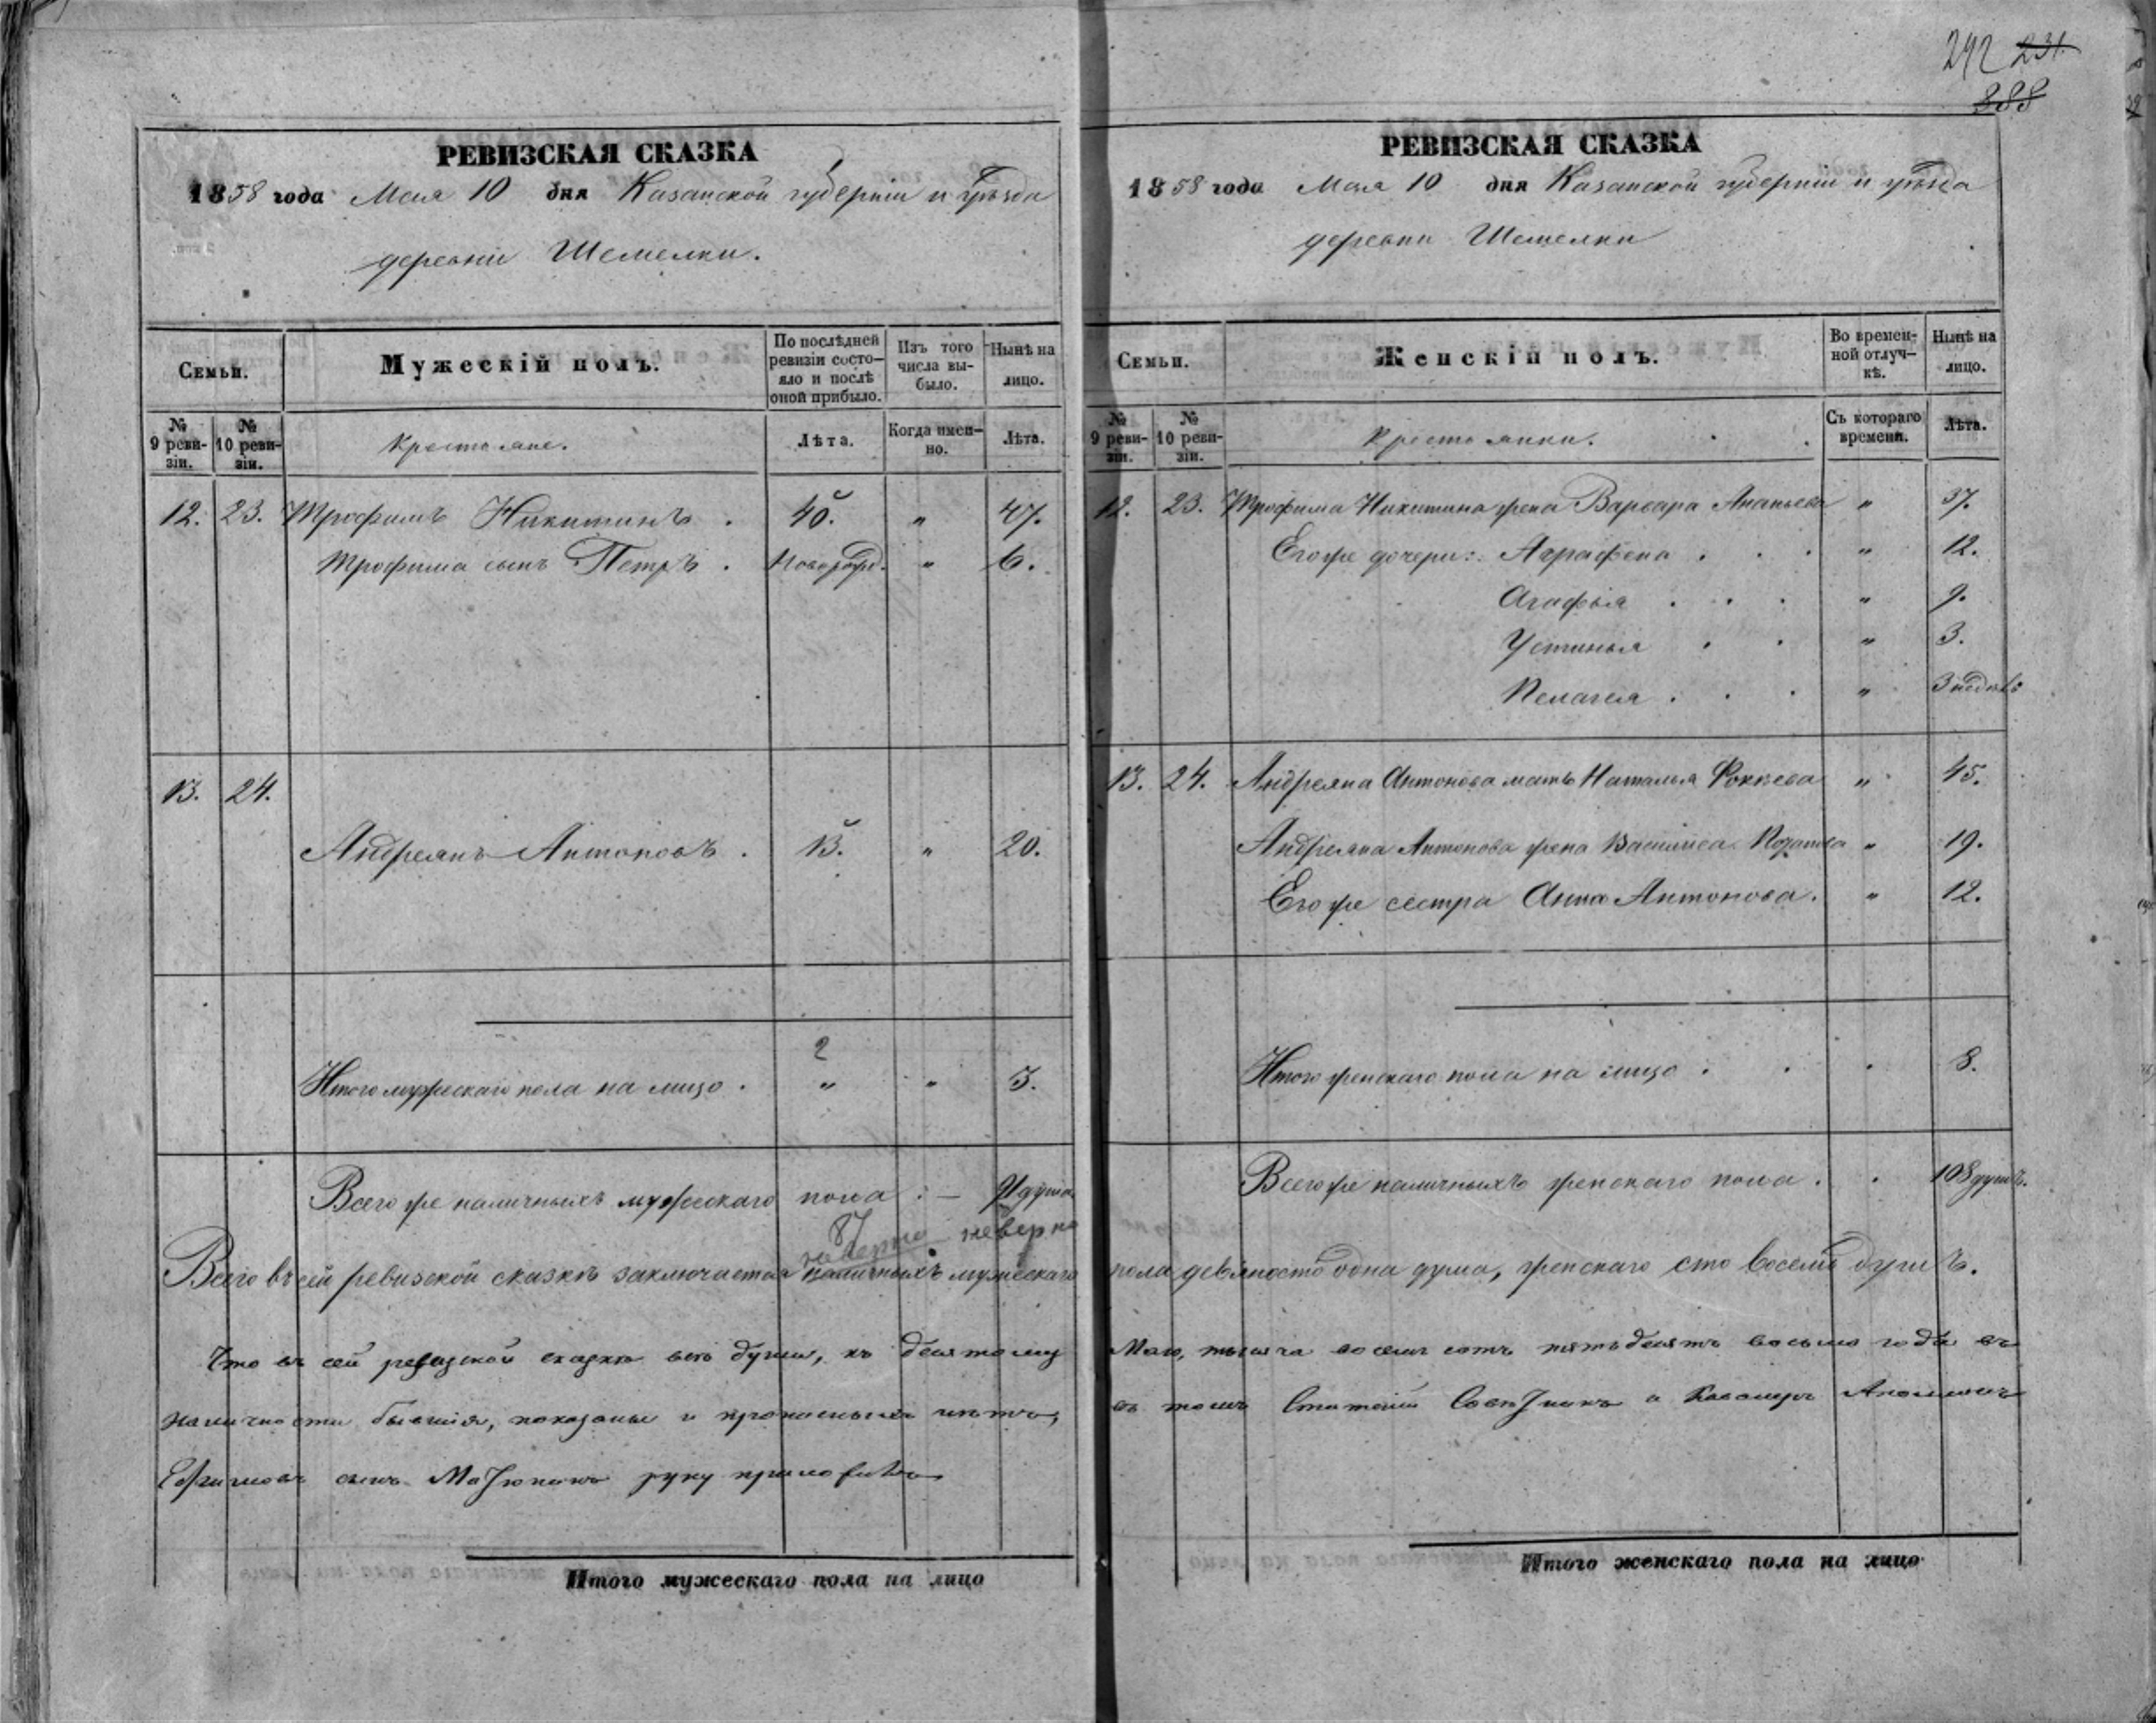 292 231.
888
РЕВИЗСКАЯ СКАЗКА
1858 года Мая 10 дня Казанской губерніи и уѣзда
деревни Шемелки.
Семьи.
Мужескій полъ.
По послѣдней ревизіи состояло и послѣ оной прибыло.
Изъ того числа выбыло.
Нынѣ на лицо.
№ 9 ревизіи.
№ 10 ревизіи.
Крестьяне.
Лѣта.
Когда именно.
Лѣта.
12. 23. Трофимъ Никитинъ . 40. " 47.
Трофима сынъ Петръ . Новорожд. " 6.
13. 24.
Андреянъ Антоновъ . 13. " 20.
2
Итого мужескаго пола на лицо . " " 3.
Всего же наличныхъ мужескаго пола : — 91 душа
87 неверно
Всего въ сей ревизской сказкѣ заключается наличныхъ мужескаго
Что въ сей ревизской сказкѣ всѣ души, къ десятому
наличности бывшія, показаны и прописныхъ нѣтъ,
Ефимовъ сынъ Матюнинъ руку приложилъ
Итого мужескаго пола на лицо
РЕВИЗСКАЯ СКАЗКА
1858 года Мая 10 дня Казанской губерніи и уѣзда
деревни Шемелки
Семьи.
Женскій полъ.
Во временной отлучкѣ.
Нынѣ на лицо.
№ 9 ревизіи.
№ 10 ревизіи.
Крестьянки.
Съ котораго времени.
Лѣта.
12. 23. Трофима Никитина жена Варвара Ананьева " 37.
Его же дочери: Аграфена . . . " 12.
Агафья . . . " 9.
Устинья . . " 3.
Пелагея . . . " 3 недѣль
13. 24. Андреяна Антонова мать Наталья Фокѣева " 45.
Андреяна Антонова жена Василиса " 19.
Его же сестра Анна Антонова. " 12.
Итого женскаго пола на лицо . . . 8.
Всего же наличныхъ женскаго пола . . 108 душъ.
пола девяносто одна душа, женскаго сто восемь душъ.
Маю, тысяча восемь сотъ пятьдесятъ восьмо года въ
въ томъ Статскій Совѣтникъ и Кавалеръ
Итого женскаго пола на лицо